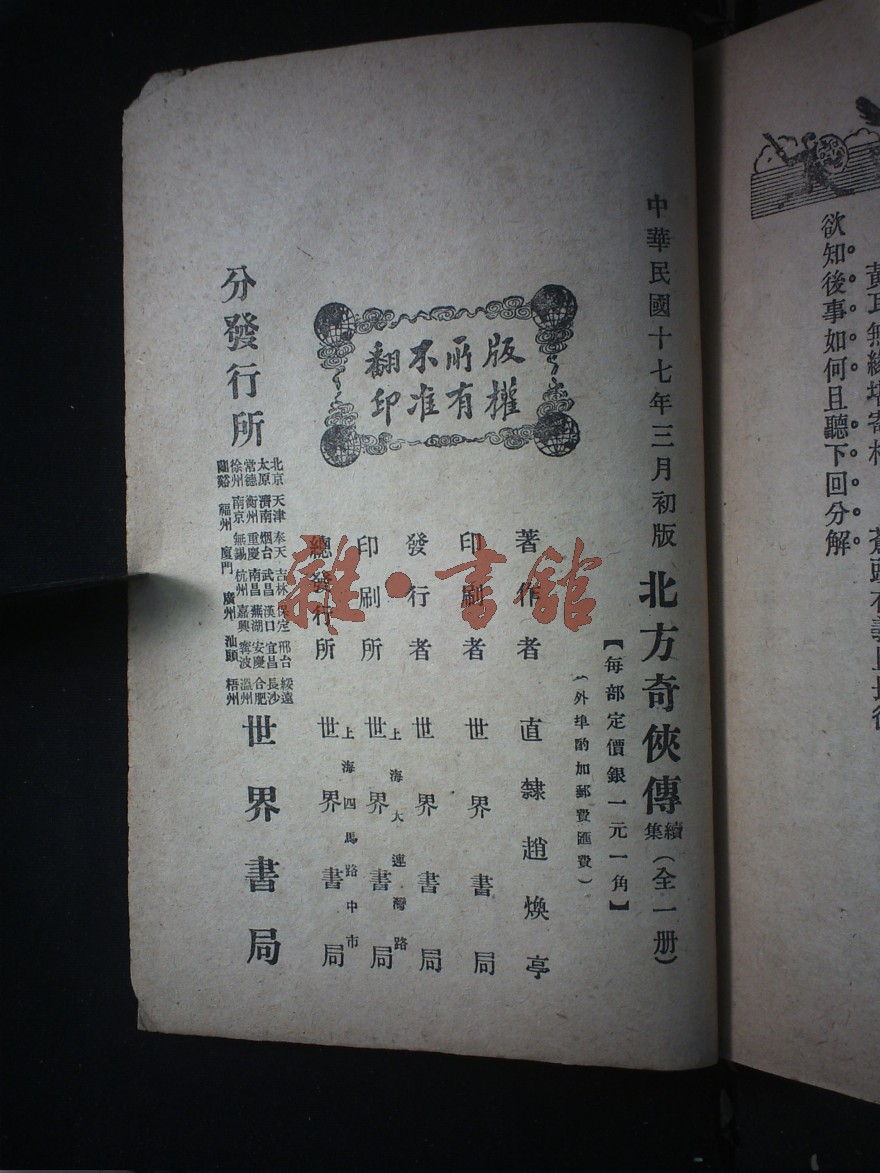 欲知後事如何且聽下回分解
中華民國十七年三月初版
北方奇俠傳續集（全一册）
【每部定價銀一元一角】
（外埠酌加郵費匯費）
版權所有
翻印不准
著作者 直隸趙煥亭
印刷者 世界書局
發行者 世界書局
印刷所 上海大連灣路 世界書局
總發行所 上海四馬路中市 世界書局
分發行所
北京 天津 奉天 吉林 保定 邢台 綏遠
太原 濟南 烟台 武昌 漢口 宜昌 長沙
常德 衡州 重慶 南昌 蕪湖 安慶 合肥
徐州 南京 無錫 杭州 嘉興 寧波 溫州
蘭谿 福州 廈門 廣州 汕頭 梧州
世界書局
雜·書館